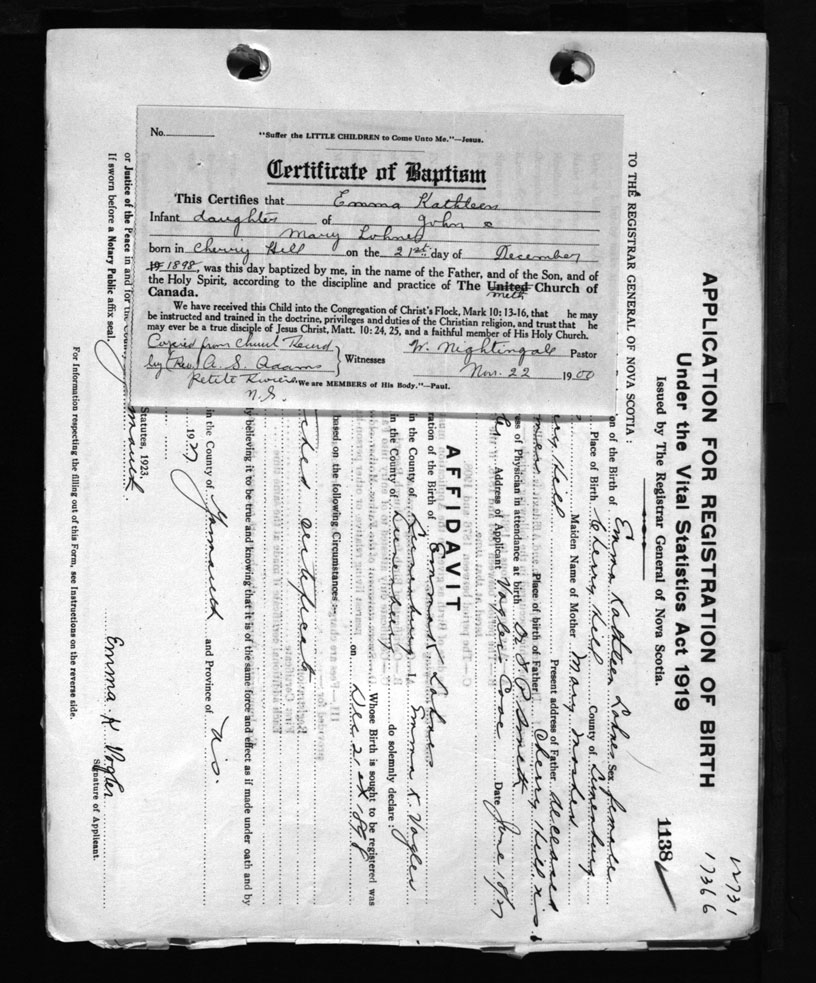 No.
"Suffer the LITTLE CHILDREN to Come Unto Me."—Jesus.
Certificate of Baptism
This Certifies that Emma Kathleen
Infant daughter of John &
Mary Lohnes
born in Cherry Hill on the 21st day of December
19 1898, was this day baptized by me, in the name of the Father, and of the Son, and of
the Holy Spirit, according to the discipline and practice of The United Church of
Meth
Canada.
We have received this Child into the Congregation of Christ's Flock, Mark 10: 13-16, that he may
be instructed and trained in the doctrine, privileges and duties of the Christian religion, and trust that he
may ever be a true disciple of Jesus Christ, Matt. 10: 24, 25, and a faithful member of His Holy Church.
Copied from Church Record
by Rev. A. S. Adams
Petite Riviere
N.S.
Witnesses
W. Nightingale Pastor
Nov. 22 1900
We are MEMBERS of His Body."—Paul.
12731
17366
APPLICATION FOR REGISTRATION OF BIRTH
Under the Vital Statistics Act 1919
1138
Issued by The Registrar General of Nova Scotia.
TO THE REGISTRAR GENERAL OF NOVA SCOTIA:
on of the Birth of Emma Kathleen Lohnes Sex female
Place of Birth Cherry Hill County of Lunenburg
Maiden Name of Mother Mary
erry Hill Present address of Father deceased
Place of birth of Father Cherry Hill N.S.
ss of Physician in attendance at birth
Address of Applicant Voglers Cove Date June 18/27
AFFIDAVIT
ration of the Birth of Emma K Lohnes
in the County of Lunenburg I, Emma K. Vogler
in the County of Lunenburg do solemnly declare:
Whose Birth is sought to be registered was
on Dec 21st 1898
based on the following Circumstances:
ched certificate
ly believing it to be true and knowing that it is of the same force and effect as if made under oath and by
in the County of Yarmouth and Province of N.S.
1927
Statutes, 1923.
Emma K Vogler
Signature of Applicant.
or Justice of the Peace in and for the County Yarmouth
If sworn before a Notary Public affix seal.
For Information respecting the filling out of this Form, see Instructions on the reverse side.